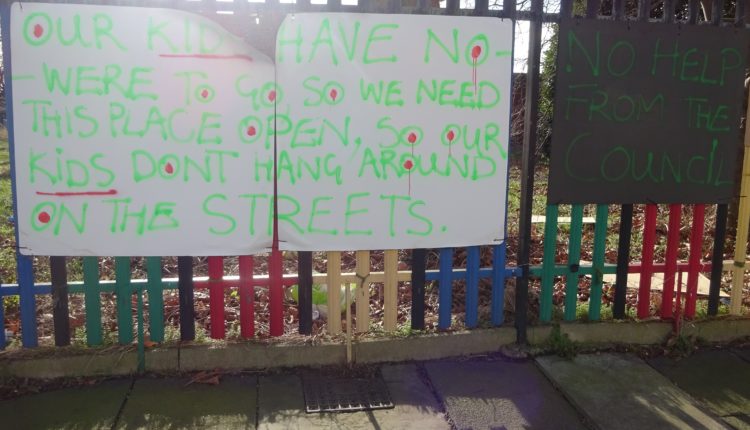 OUR KIDS HAVE NO-
-WERE TO GO, SO WE NEED
THIS PLACE OPEN, SO OUR
KIDS DONT HANG AROUND
ON THE STREETS.
NO HELP
FROM THE
COUNCIL